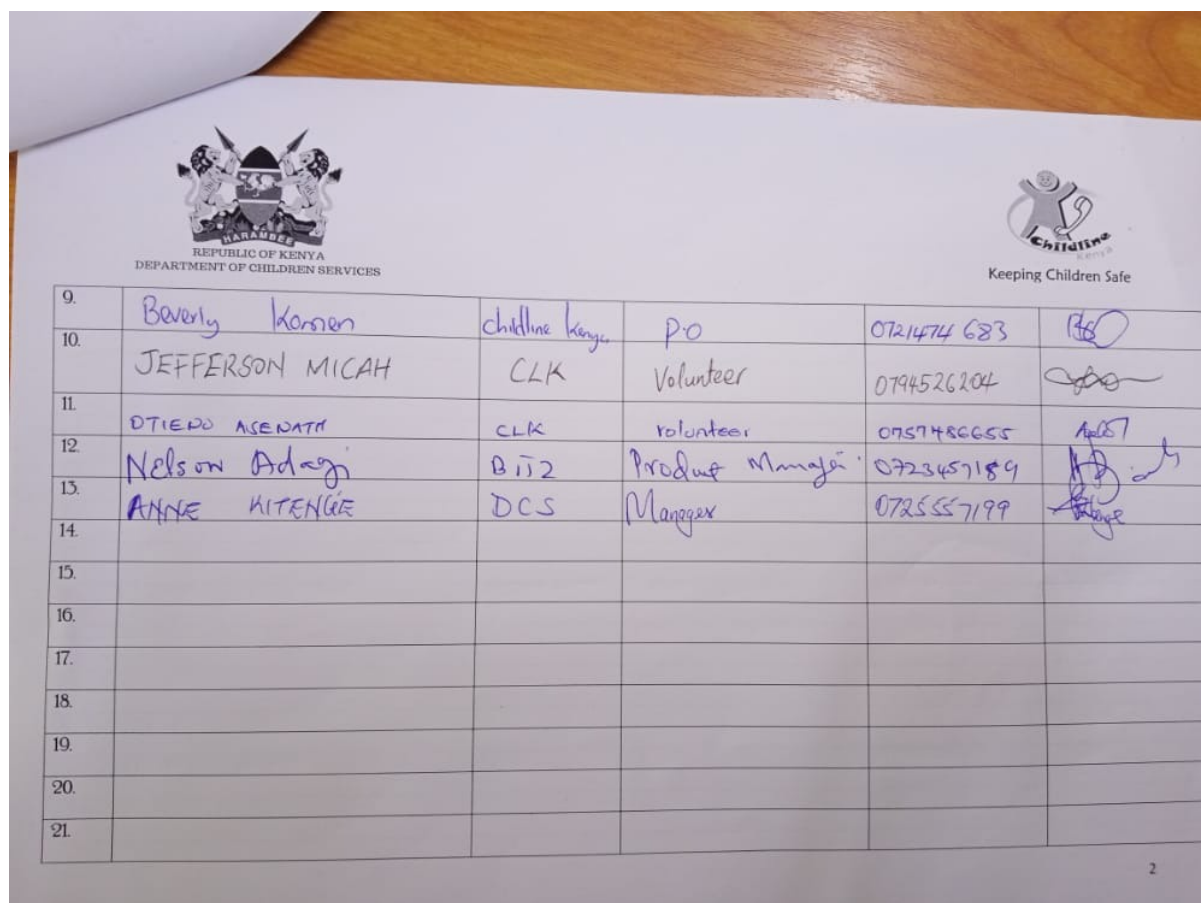 HARAMBEE
REPUBLIC OF KENYA
DEPARTMENT OF CHILDREN SERVICES
Childline
Kenya
Keeping Children Safe
9. Beverly Komen childline Kenya P.O 0721474 683
10. JEFFERSON MICAH CLK Volunteer 0794526204
11. OTIENO ASENATH CLK volunteer 0757486655
12. Nelson Adagi BiTZ Product Manager 0723457189
13. ANNE KITENGE DCS Manager 0725557199
14.
15.
16.
17.
18.
19.
20.
21.
2